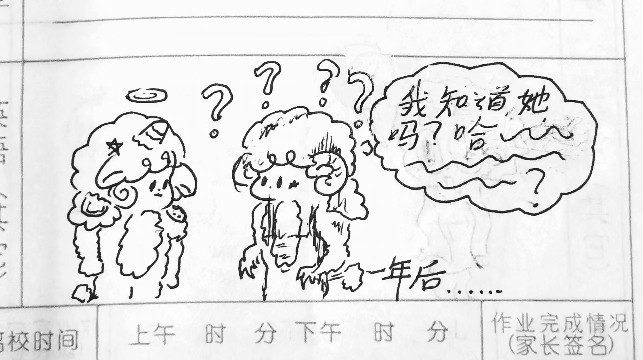 我知道她
吗？哈
？
？
？
？
？
一年后……
离校时间
上午 时 分 下午 时 分
作业完成情况
(家长签名)